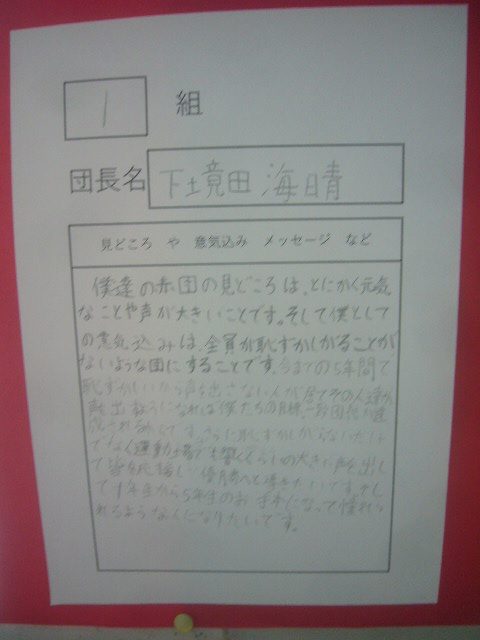 1 組
団長名 下境田 海晴
見どころ や 意気込み メッセージ など
僕達の赤団の見どころは、とにかく元気
なことや声が大きいことです。そして僕として
の意気込みは、全員が恥ずかしがることが
ないような団にすることです。今までの5年間で
恥ずかしいから声を出さない人が居てその人達が
声出
るようになれば僕たちの目標
です。さらに恥ずかしがらないだけ
でなく運動場でも響くくらいの大きな声を出し
て 優勝へと導きたいです。そし
て1年生から5年生のお手本になって憧れら
れるような人になりたいです。